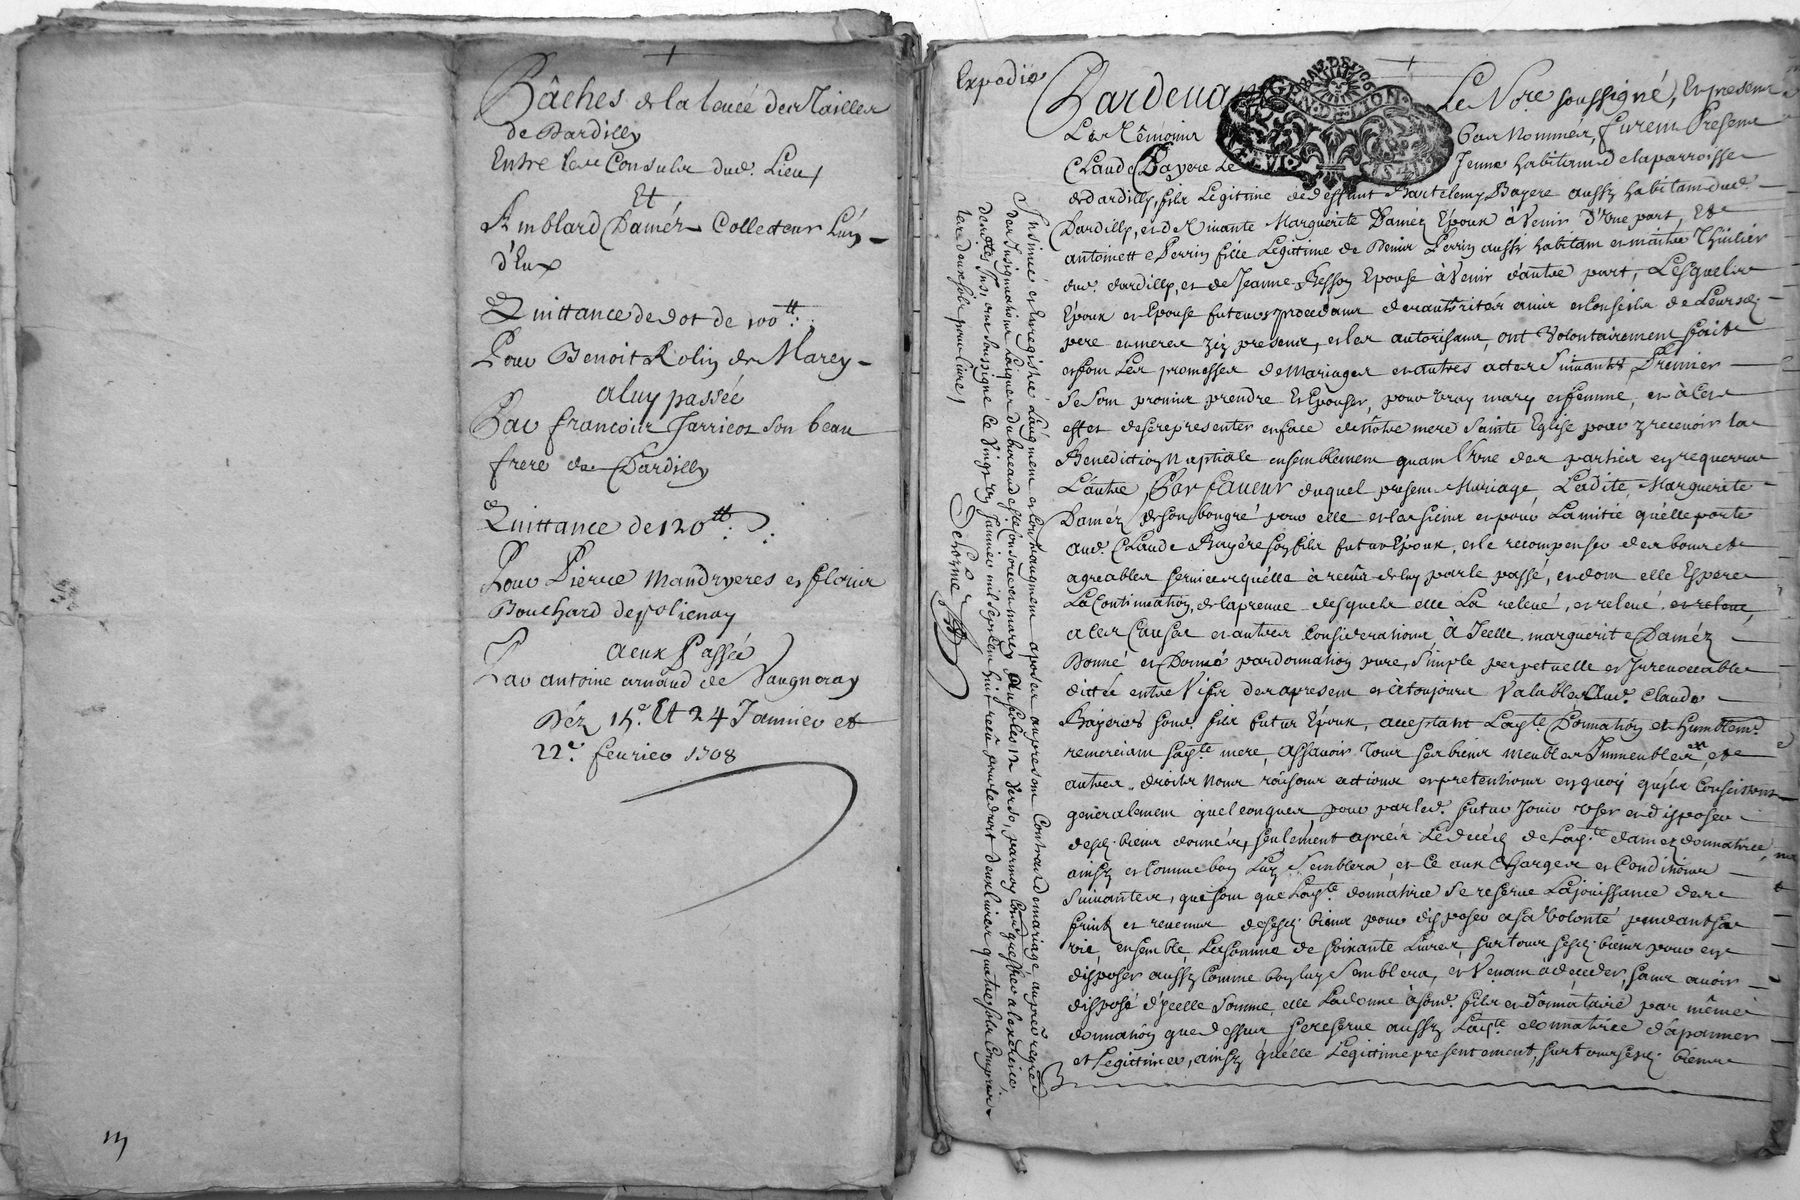 Bâches de la levée des Tailles
de Dardilly
Entre les Consuls dud. Lieu
Et
Amblard Daméz Collecteur Lun
d'Eux
Quittance de dot de 100tt
Pour Benoit Rolin de Marcy
a luy passée
Par francois Jarricot son beau
frere de Dardilly
Quittance de 120tt
Pour Pierre Mandryeres et floris
Bouchard de
a eux Passée
Par antoine arnaud de Vaugneray
Déz 15e. Et 24 Janvier et
22e. feurier 1708
Expedié
Pardeuant Le Nore soussigné, En presence
Les Témoins Bas Nommés, furent Presens
Claude Bayere Le Jeune habitant de la parroisse
de dardilly, fils Legitime de deffunt Bartelemy Bayere aussy habitant dud.
Dardilly, et de Viuante Marguerite Damez Epoux à Venir D'Vne part, Et
antoinette Perrin fille Legitime de Benoit Perrin aussy habitant et maitre
dud. dardilly, et de Jeanne Besson Epouse à Venir d'autre part, Lesquels
Epoux et Epouse futeurs procedans de authoritér auis et Conseils de Leursd.
pere et meres icy presens, et les autorisans, ont Volontairement fait
et font Les promesses de Mariages et autres actes Suiuants, Premier
Se Sont promis prendre et Epouser, pour vray mary et femme, et à Cet
effet de se representer en face de nôtre mere Sainte Eglise pour y receuoir la
Benediction Nuptiale ensemblement quand L'vne des parties en requerra
L'autre, Par faueur duquel present Mariage, Ladite Marguerite
Daméz de son bon gré pour elle et les siens et pour Lamitié qu'elle porte
aud. Claude Bayére son fils futur Epoux, et le recompenser des bons et
agreables seruices qu'elle à receu de luy par le passé, et dont elle Espere
La Continuation, de la preuue desquels elle La releué, et releué et releue
a Ces Causes et autres Considerations à Icelle marguerite Daméz
Donné et Donne par donnation pure, simple perpetuelle et Irreuocable
ditte entre Vifs des apresent et à toujours Valable aud. Claude
Bayeres sond. fils futur Epoux, acceptant Lad.te Donnation et humblemt.
remerciant sad.te mere, assauoir tous ses biens meubles Immeubles et
autres droits Noms raisons actions et pretentions en quoy qu'ils Consistent
generalement quelconques, pour par led. futur Jouir vser et disposer
desd. biens donnés, seulement aprés Le decés de Lad.te damez donnatrice,
ainsy et Comme bon Luy Semblera, et Ce aux Charges et Conditions
Suiuantes, que sont que Lad.te donnatrice Se reserue La jouissance des
fruits et reuenus de sesd. biens pour disposer a sa Volonté pendant sa
vie, ensemble, La somme de soixante Liures sur tous sesd. biens pour en
disposer aussy Comme bon luy Semblera, et Venant à deceder, sans auoir
disposé d'Icelle Somme, elle La donne à sond. fils et donnataire par même
donnation que dessus se reserue aussy Lad.te donnatrice d'apanner
et Legitimer, ainsy qu'elle Legitime presentement, sur tous sesd. biens
Insinué et Enregistré L'augment et Contraugment aposés au present Contract de mariage, au present registre
des Insignuations Laiques du bureau de
lettres deux sols pour liure